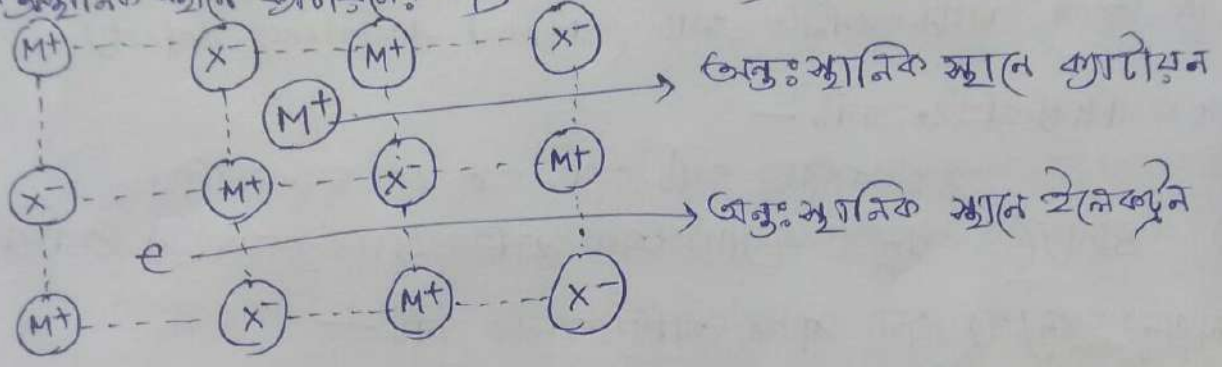 M+ X- M+ X-
M+ অন্তঃস্থানিক স্থানে ক্যাটায়ন
X- M+ X- M+
e অন্তঃস্থানিক স্থানে ইলেকট্রন
M+ X- M+ X-